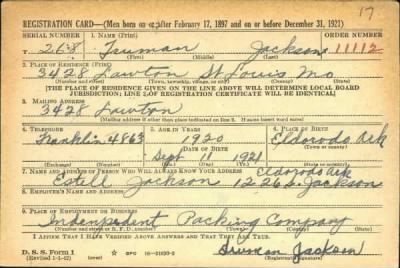 17
REGISTRATION CARD—(Men born on or after February 17, 1897 and on or before December 31, 1921)
SERIAL NUMBER 1. NAME (Print) ORDER NUMBER
T 268 Truman Jackson 11112
(First) (Middle) (Last)
2. PLACE OF RESIDENCE (Print)
3428 Lawton St Louis Mo
(Number and street) (Town, township, village, or city) (County) (State)
[THE PLACE OF RESIDENCE GIVEN ON THE LINE ABOVE WILL DETERMINE LOCAL BOARD
JURISDICTION; LINE 2 OF REGISTRATION CERTIFICATE WILL BE IDENTICAL]
3. MAILING ADDRESS
3428 Lawton
(Mailing address if other than place indicated on line 2. If same insert word same)
4. TELEPHONE 5. AGE IN YEARS 6. PLACE OF BIRTH
Franklin 4863 1920 Eldorodo Ark
DATE OF BIRTH (Town or county)
Sept 18 1921
(Exchange) (Number) (Mo.) (Day) (Yr.) (State or country)
7. NAME AND ADDRESS OF PERSON WHO WILL ALWAYS KNOW YOUR ADDRESS Eldorodo Ark
Estell Jackson 1226 S. Jackson
8. EMPLOYER'S NAME AND ADDRESS
Indenpendent Packing Company
9. PLACE OF EMPLOYMENT OR BUSINESS
(Number and street or R. F. D. number) (Town) (County) (State)
I AFFIRM THAT I HAVE VERIFIED ABOVE ANSWERS AND THAT THEY ARE TRUE.
D. S. S. Form 1
(Revised 1-1-42) (over) GPO 16-21630-2 Truman Jackson